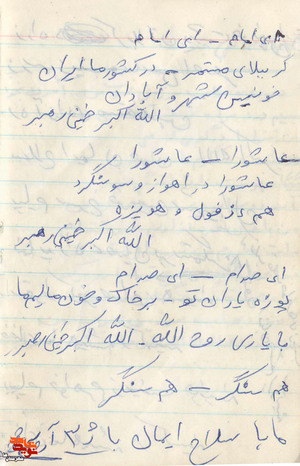 ای امام – ای امام
کربلای مستمر – در کشور ما ایران
خونین شهر و آبادان
الله اکبر خمینی رهبر
عاشورا – عاشورا
عاشورا در اهواز و سوسنگرد
هم دزفول و هویزه
الله اکبر خمینی رهبر
ای صدام – ای صدام
پوزه یاران تو – بر خاک و خون مالیم ما
با یاری روح الله – الله اکبر خمینی رهبر
هم سنگر – هم سنگر
ما با سلاح ایمان با ژ۳